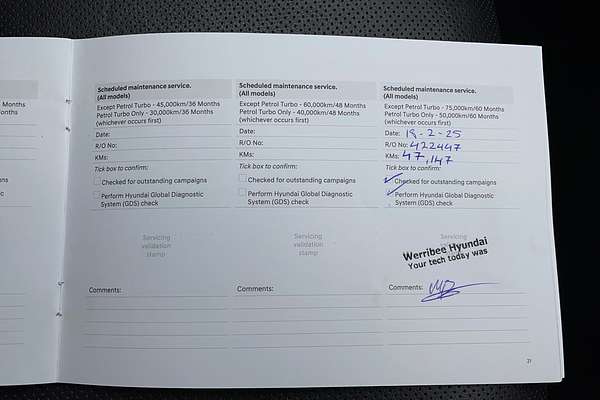 Months
onths
ns
tic
Scheduled maintenance service.
(All models)
Except Petrol Turbo - 45,000km/36 Months
Petrol Turbo Only - 30,000km/36 Months
(whichever occurs first)
Date:
R/O No:
KMs:
Tick box to confirm:
Checked for outstanding campaigns
Perform Hyundai Global Diagnostic
System (GDS) check
Servicing
validation
stamp
Comments:
Scheduled maintenance service.
(All models)
Except Petrol Turbo - 60,000km/48 Months
Petrol Turbo Only - 40,000km/48 Months
(whichever occurs first)
Date:
R/O No:
KMs:
Tick box to confirm:
Checked for outstanding campaigns
Perform Hyundai Global Diagnostic
System (GDS) check
Servicing
validation
stamp
Comments:
Scheduled maintenance service.
(All models)
Except Petrol Turbo - 75,000km/60 Months
Petrol Turbo Only - 50,000km/60 Months
(whichever occurs first)
Date: 19-2-25
R/O No: 422447
KMs: 47,147
Tick box to confirm:
Checked for outstanding campaigns
Perform Hyundai Global Diagnostic
System (GDS) check
Servicing
Werribee Hyundai
Your tech today was
Comments:
21